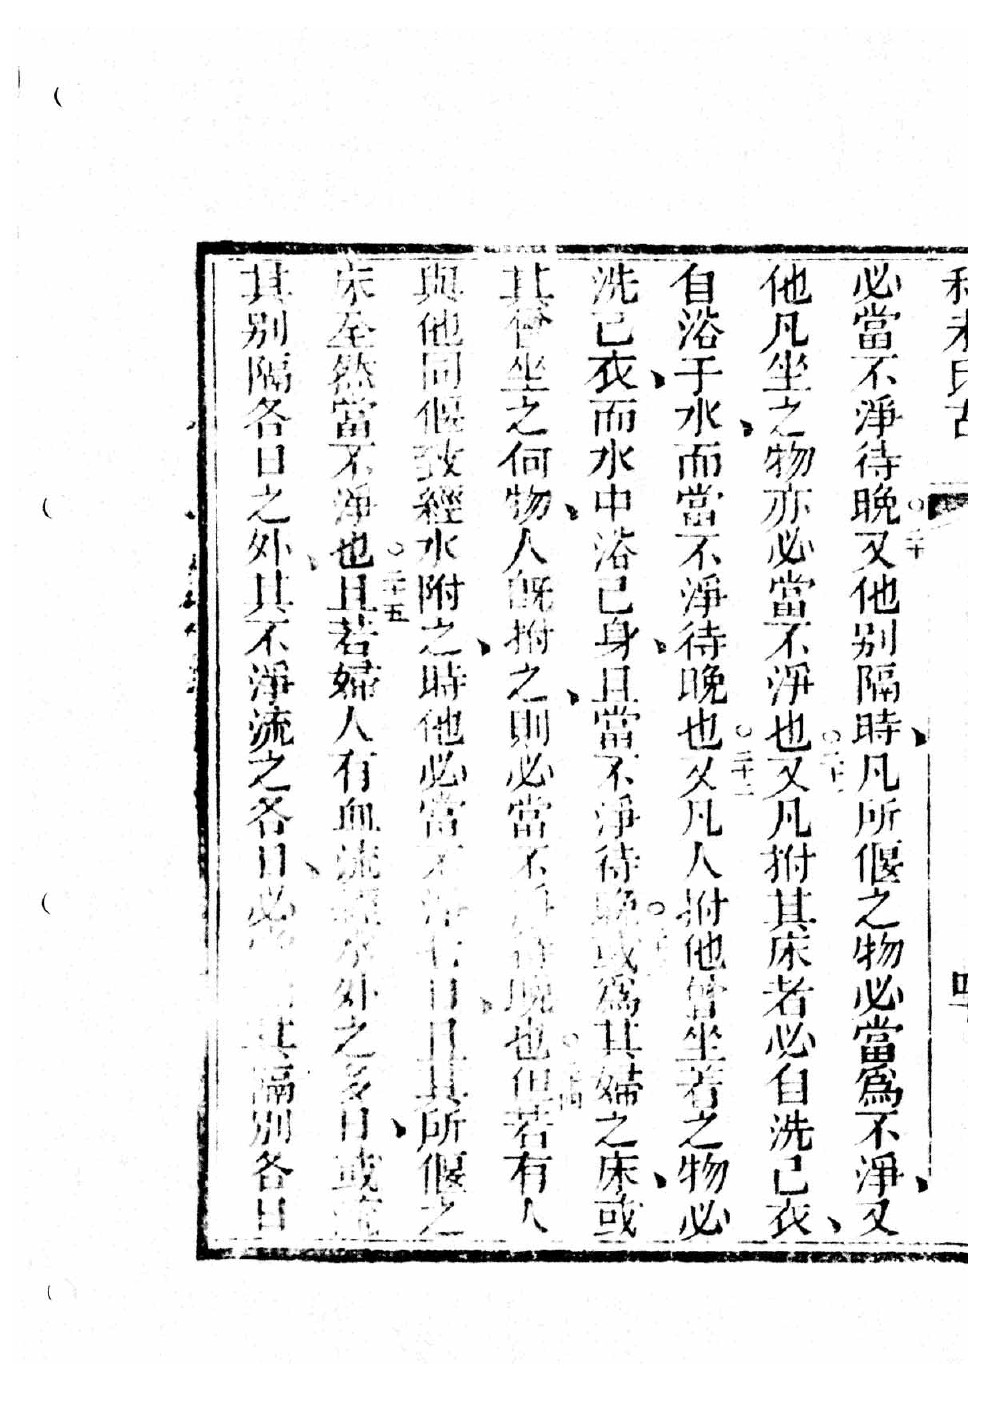 必當不淨待晚○二十又他别隔時凡所偃之物必當爲不淨又
他凡坐之物亦必當不淨也又凡拊其床者必自洗己衣
自浴于水而當不淨待晚也○二十二又凡人拊他曾坐着之物必
洗己衣而水中浴己身且當不淨待晚或爲其婦之床或
其曾坐之何物人旣拊之則必當不淨待晚也但若有人
與他同偃致經水附之時他必當不淨七日且其所偃之
床全然當不淨也○二十五且若婦人有血流經水外之多日或流
其别隔各日之外其不淨流之各日必其隔别各日